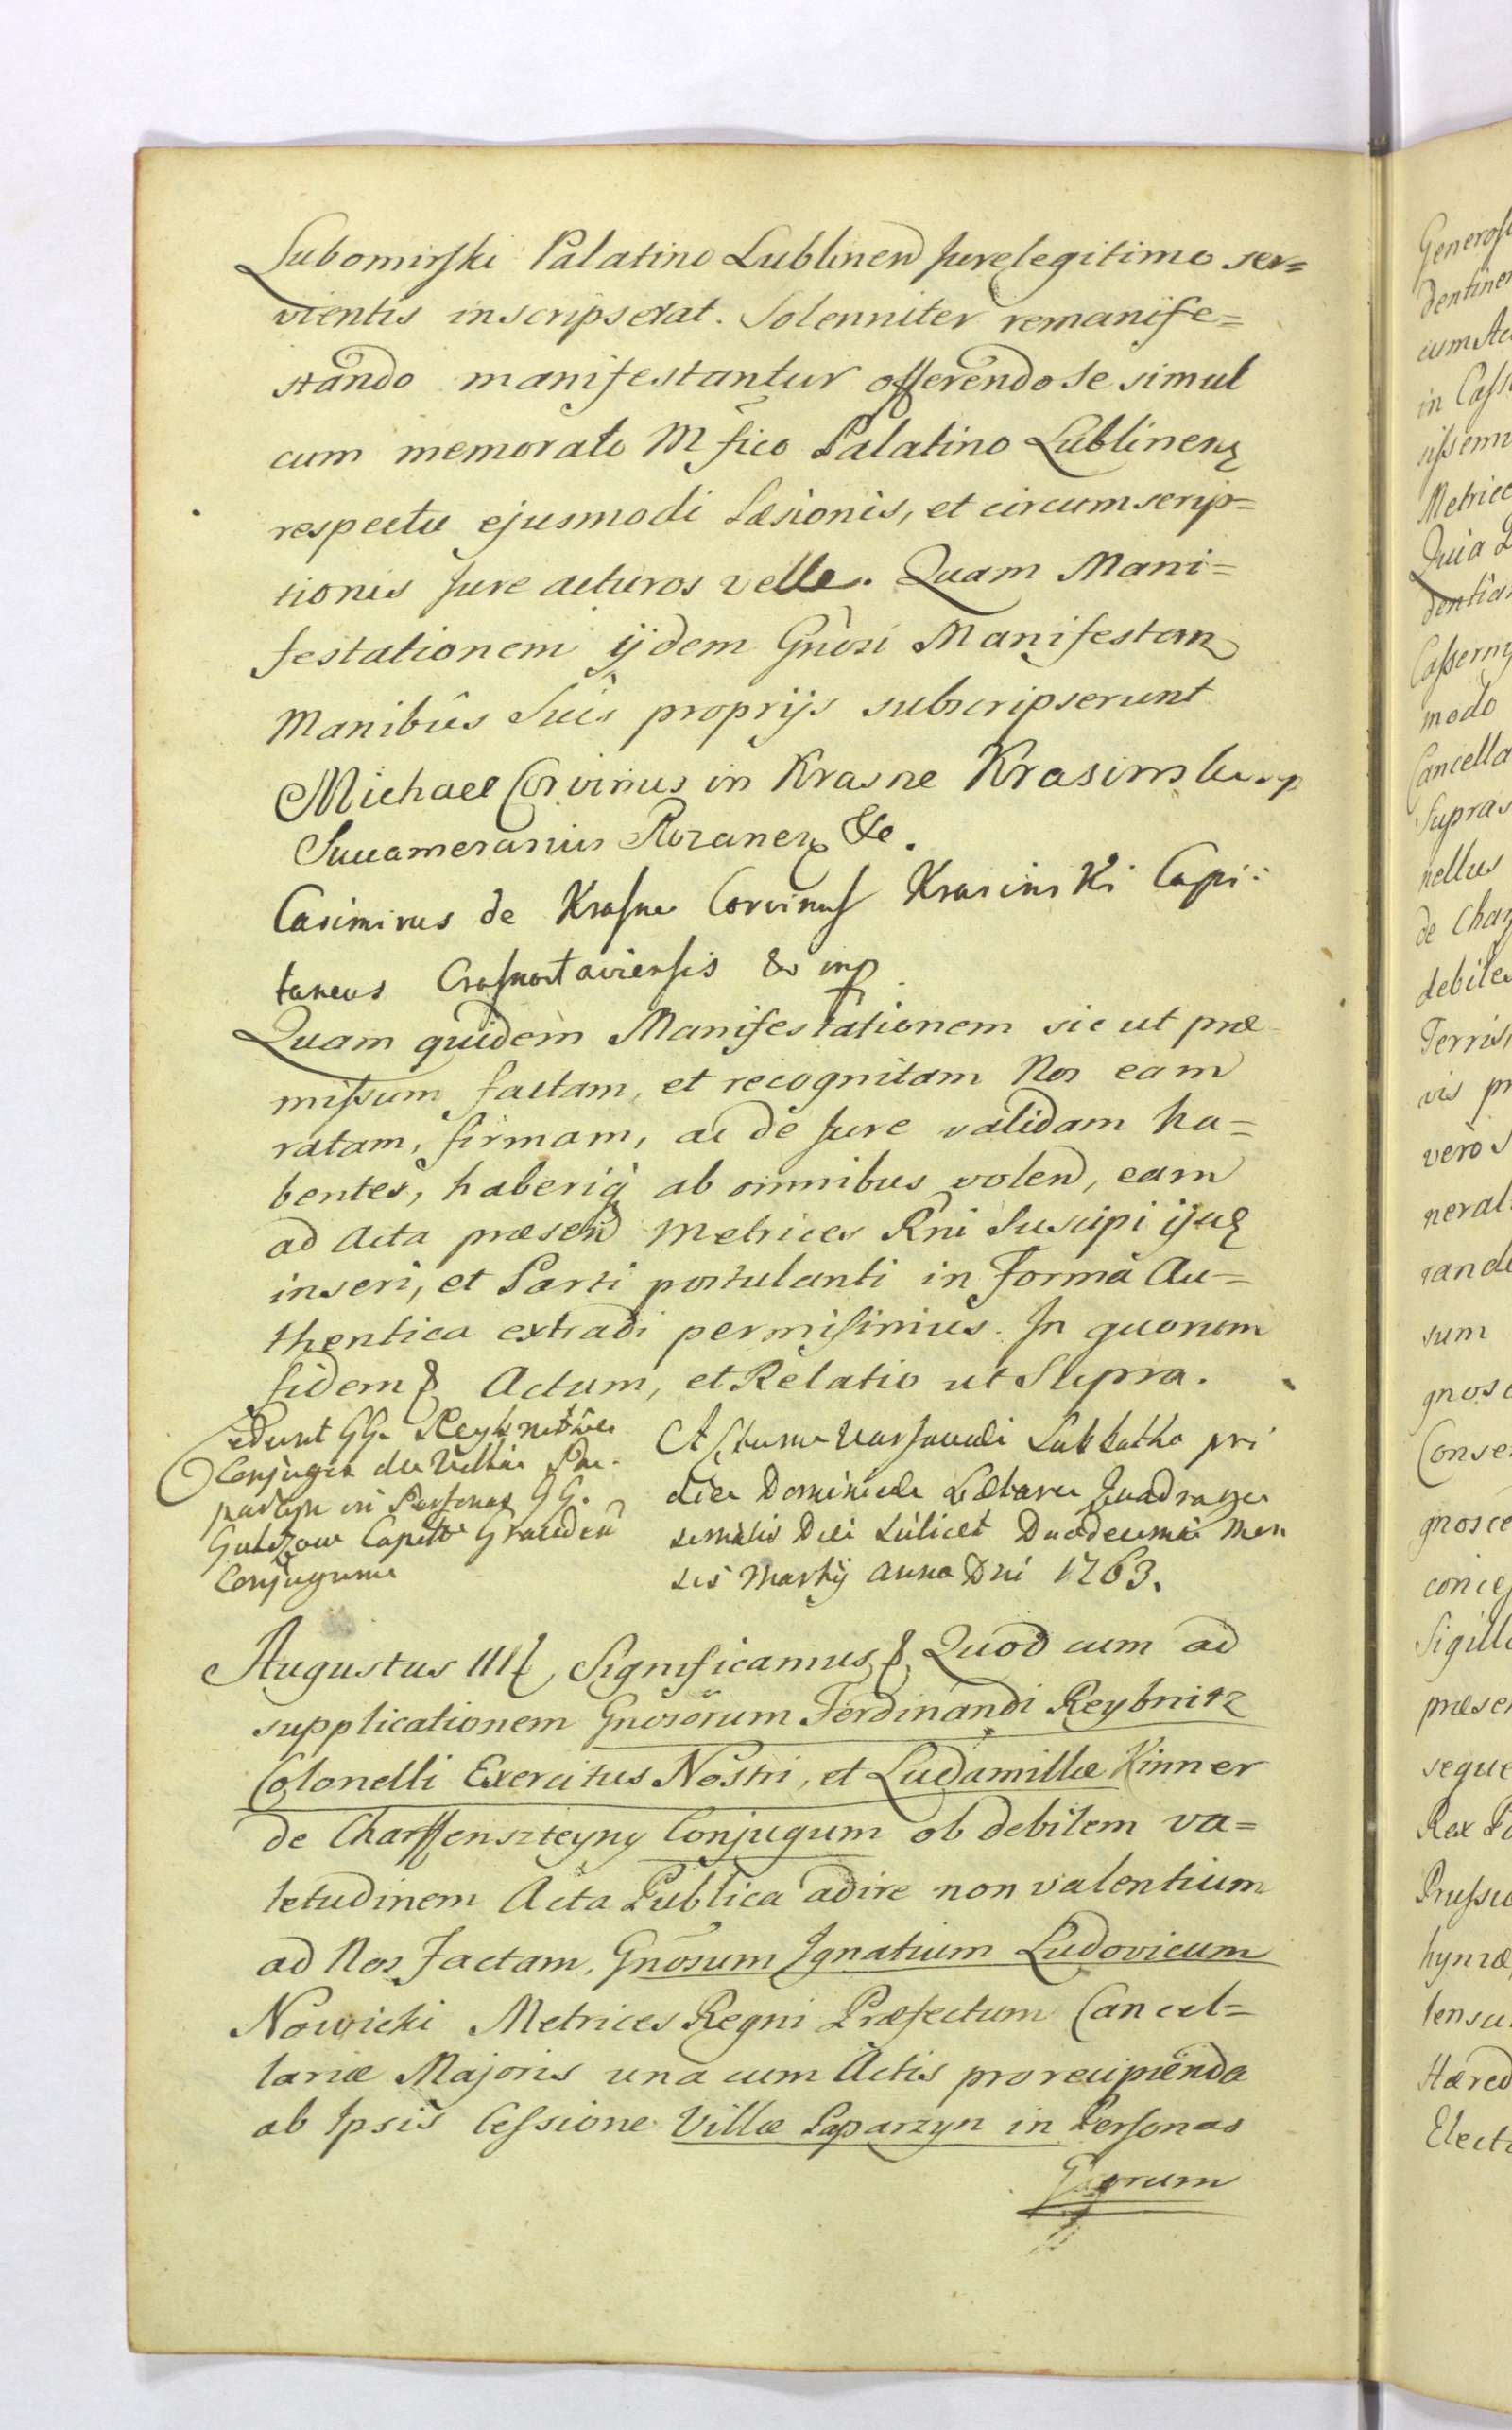 Lubomirski Palatino Lublinen Jure legitimo ser=
vientis inscripserat. Solenniter remanife=
stando manifestantur offerendo Se simul
cum memorato Mfico Palatino Lublinen
respectu ejusmodi Læsionis, et circumscrip=
tionis Jure acturos velle. Quam Mani=
festationem ijdem Gnosi Manifestan
Manibus Suis proprijs subscripserunt
Michael Corvinus in Krasne Krasinski mp
Succamerarius Rozanen &c.
Casimirus de Krasne Corvinus Krasinski Capi:
taneus Crasnostaviensis & mp
Quam quidem Manifestationem sic ut præ
missum factam, et recognitam Nos eam
ratam, firmam, ac de Jure validam ha=
bentes, haberiq ab omnibus volen, eam
ad Acta præsen Metrices Rni Suscipi ijsq
inseri, et Parti postulanti in Forma Au=
thentica extradi permisimus. In quorum
fidem & Actum, et Relatio ut Supra.
Cedunt GG. Reybnitze
Conjuges de Villa Pa-
parzyn in Personas GG.
Capitt Grauden
Conjugum
Actum Varsaviæ Sabbatho pri
die Dominicæ Lætare Quadrage
simalis Die Scilicet Duodecima Men
sis Martij Anno Dni 1763.
Augustus III & Significamus & Quod cum ad
supplicationem Gnosorum Ferdinandi Reybnitz
Colonelli Exercitus Nostri, et Ludamillæ Kinner
de Charffenszteyny Conjugum ob debilem va=
letudinem Acta Publica adire non valentium
ad Nos factam, Gnosum Ignatium Ludovicum
Nowicki Metrices Regni Præfectum Cancel=
lariæ Majoris una cum Actis pro recipienda
ab Ipsis Cessione Villæ Paparzyn in Personas
Gnorum
Generos
dentine
cum Ac
in Cass
Metric
Quia
dentia
modo
Cancella
Supra
nellus
de Char
debile
Terris
vis
vero
neral
rande
sum
gnos
Conse
gnosce
Sigill
præse
seque
Rex
Prussi
Hæred
Elect